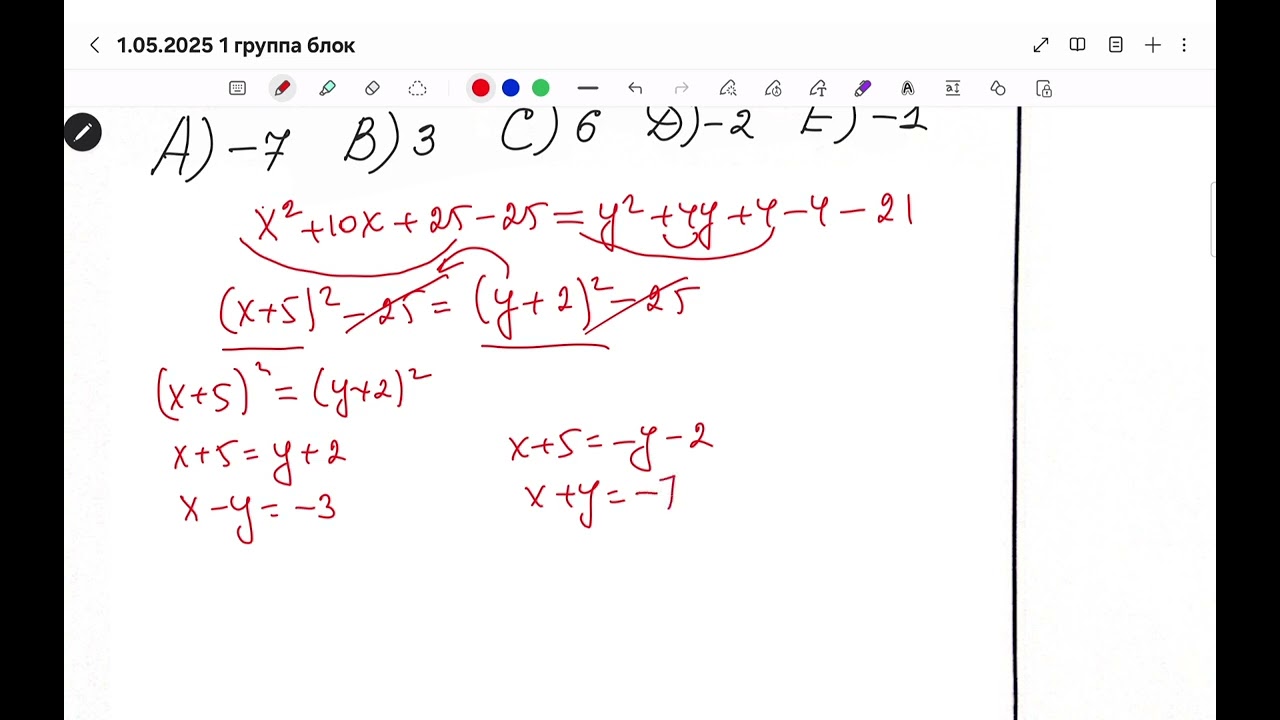 1.05.2025 1 группа блок
A) -7 B) 3 C) 6 D) -2 E) -1
x² + 10x + 25 - 25 = y² + 4y + 4 - 4 - 21
(x+5)² - 25 = (y+2)² - 25
(x+5)² = (y+2)²
x+5 = y+2 x+5 = -y-2
x-y = -3 x+y = -7